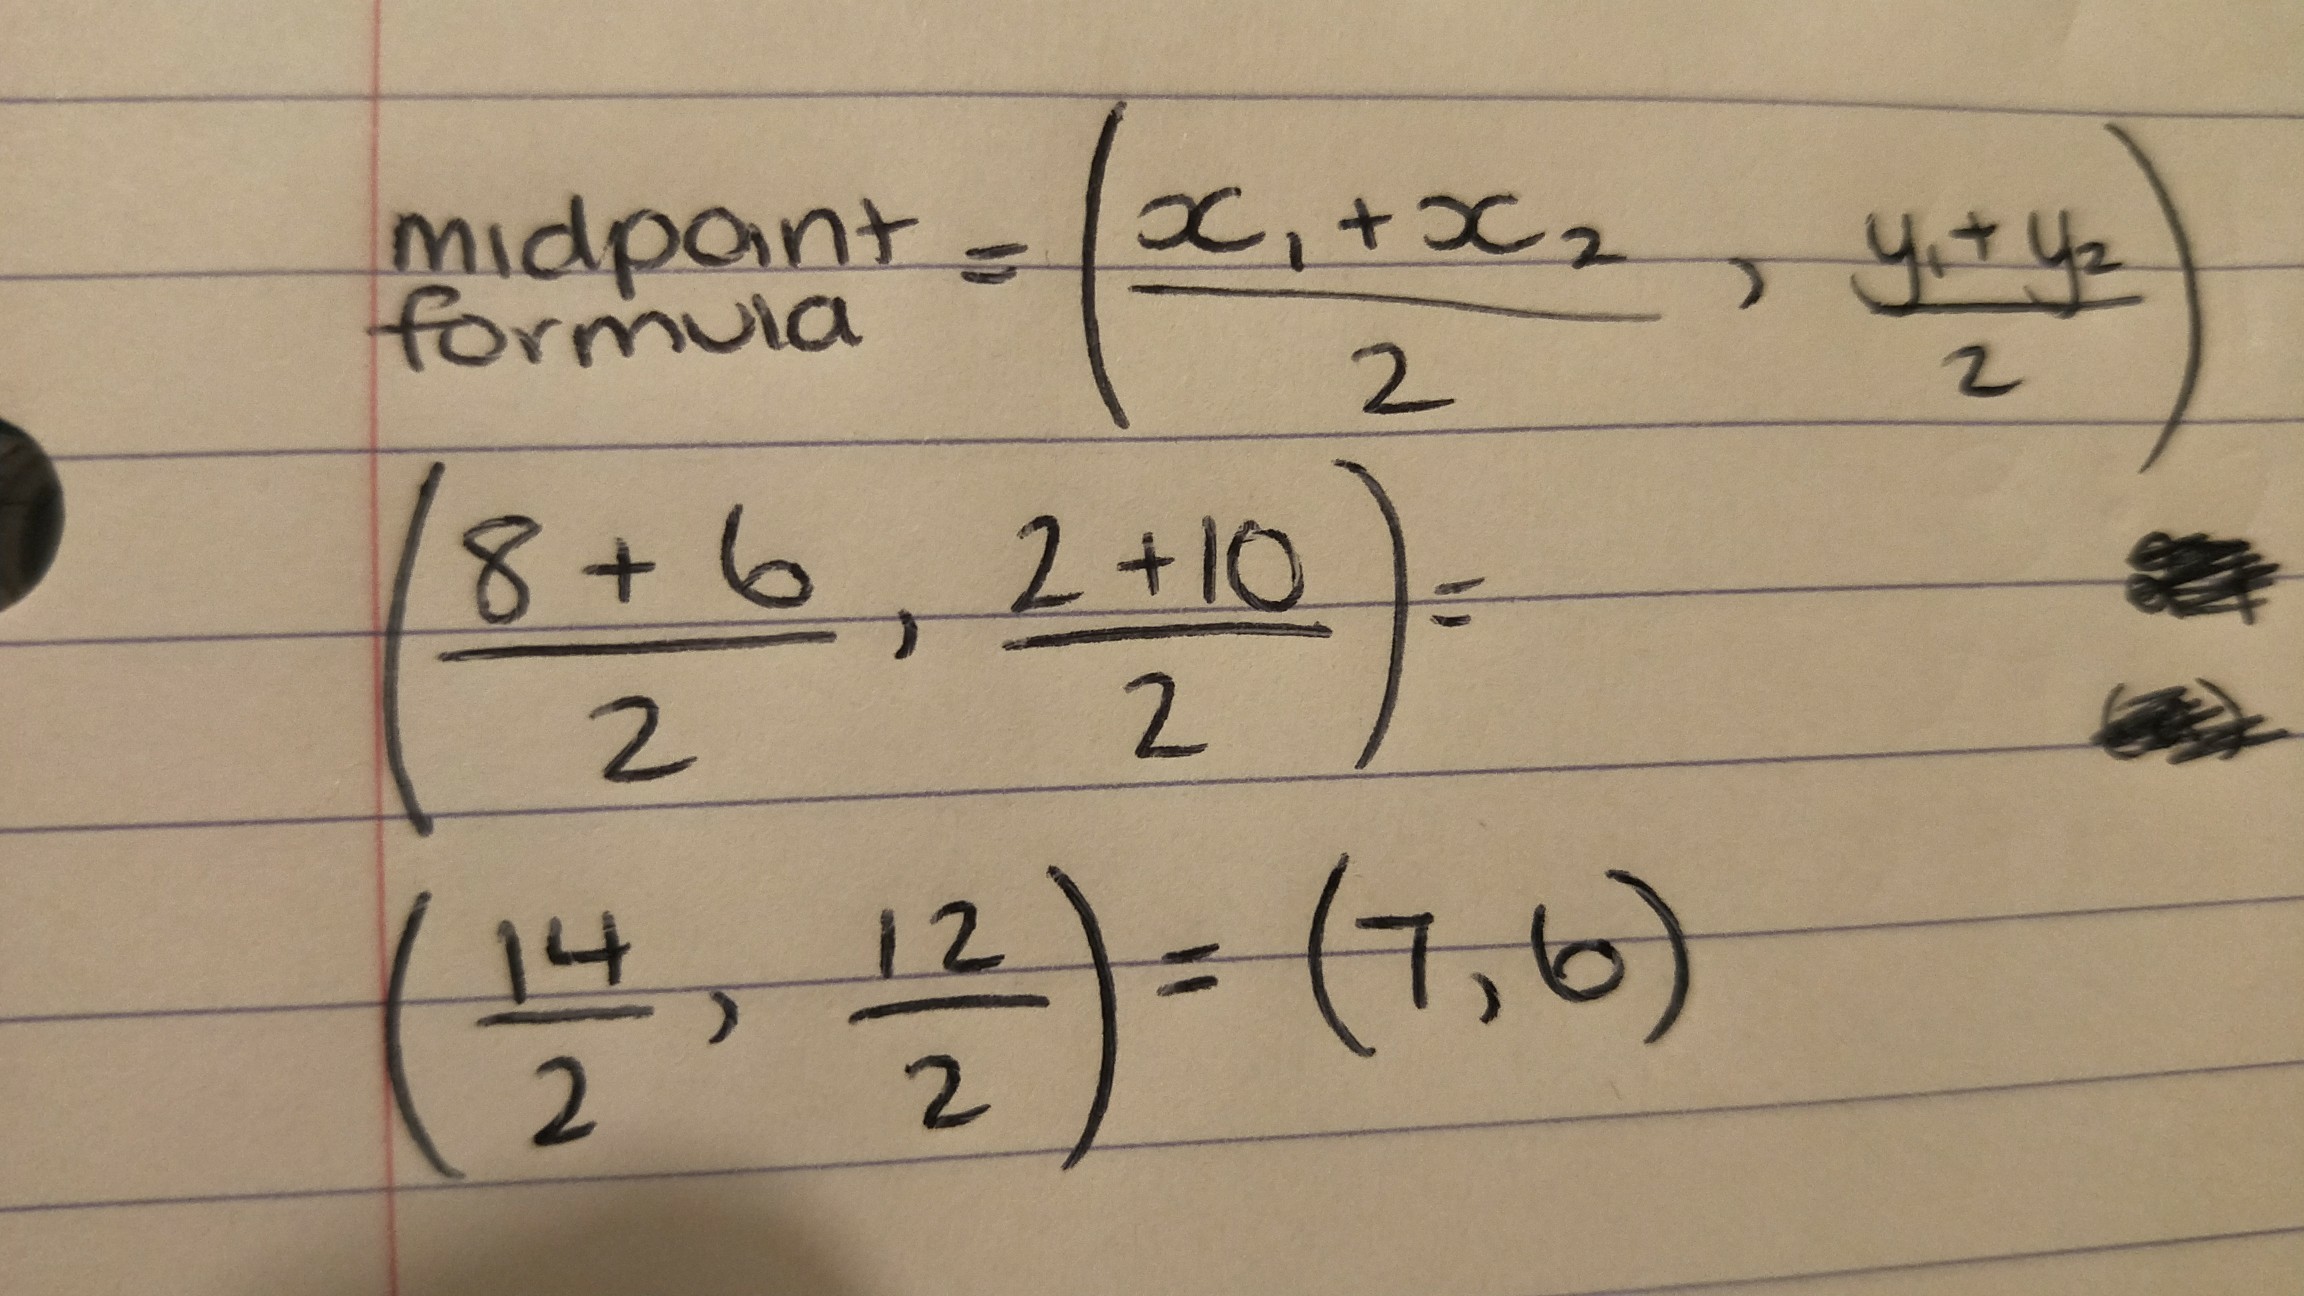 midpoint formula = (x₁ + x₂ / 2 , y₁ + y₂ / 2)
(8 + 6 / 2 , 2 + 10 / 2) =
(14 / 2 , 12 / 2) = (7, 6)